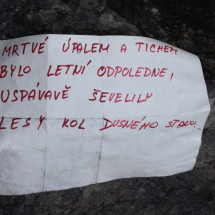 MRTVÉ ÚPALEM A TICHEM
BYLO LETNÍ ODPOLEDNE,
USPÁVAVĚ ŠEVELILY
LESY KOL DUSNÉHO STANU.